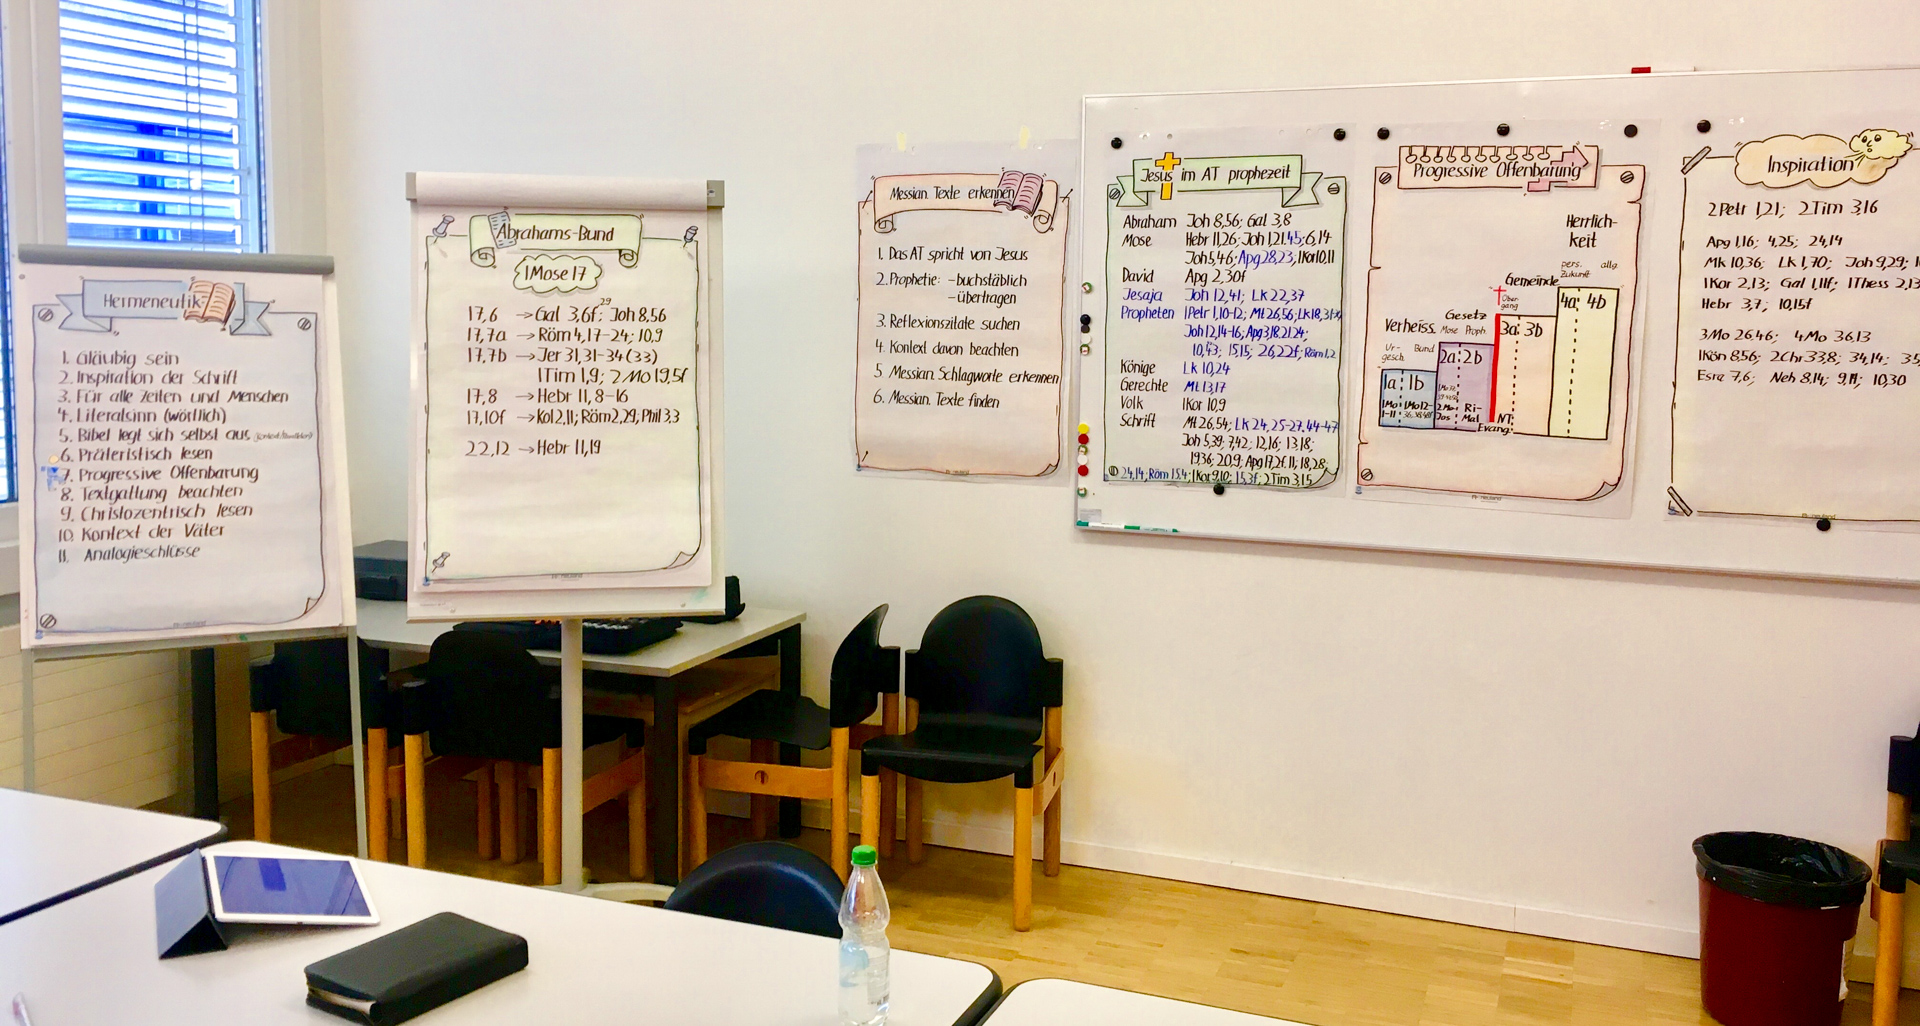 Hermeneutik
1. Gläubig sein
2. Inspiration der Schrift
3. Für alle Zeiten und Menschen
4. Literalsinn (wörtlich)
5. Bibel legt sich selbst aus
6. Präteristisch lesen
7. Progressive Offenbarung
8. Textgattung beachten
9. Christozentrisch lesen
10. Kontext der Väter
11. Analogieschlüsse
Abrahams-Bund
1Mose 17
17,6 → Gal 3,6f; 29 Joh 8,56
17,7a → Röm 4,17-24; 10,9
17,7b → Jer 31,31-34 (33)
1Tim 1,9; 2Mo 19,5f
17,8 → Hebr 11, 8-16
17,10f → Kol 2,11; Röm 2,29; Phil 3,3
22,12 → Hebr 11,19
Messian. Texte erkennen
1. Das AT spricht von Jesus
2. Prophetie: - buchstäblich
- übertragen
3. Reflexionszitate suchen
4. Kontext davon beachten
5 Messian. Schlagworte erkennen
6. Messian. Texte finden
Jesus im AT prophezeit
Abraham Joh 8,56; Gal 3,8
Mose Hebr 11,26; Joh 1,21.45; 6,14
Joh 5,46; Apg 28,23; 1Kor 10,11
David Apg 2,30f
Jesaja Joh 12,41; Lk 22,37
Propheten 1Petr 1,10-12; Mt 26,56; Lk 18,31
Joh 12,14-16; Apg 3,18.21.24;
10,43; 15,15; 26,22f; Röm 1,2
Könige Lk 10,24
Gerechte Mt 13,17
Volk 1Kor 10,9
Schrift Mt 26,54; Lk 24,25-27.44-47
Joh 5,39; 7,42; 12,16; 13,18;
19,36; 20,9; Apg 17,2f.11; 18,28
24,14; Röm 15,4; 1Kor 9,10; 15,3f; 2Tim 3,15
Progressive Offenbarung
Herrlich-
keit
pers. allg.
Zukunft
Gemeinde
Über-
gang
4a 4b
Gesetz
Mose Proph.
3a 3b
Verheiss.
Ur-
gesch. Bund
2a 2b
1a 1b
1Mo 1Mo 12-
1-11
2Mo- Ri-
Jos Mal
NT
Evang.
Inspiration
2Petr 1,21; 2Tim 3,16
Apg 1,16; 4,25; 24,14
Mk 10,36; Lk 1,70; Joh 9,29;
1Kor 2,13; Gal 1,11f; 1Thess 2,13
Hebr 3,7; 10,15f
3Mo 26,46; 4Mo 36,13
1Kön 8,56; 2Chr 33,8; 34,14;
Esra 7,6; Neh 8,14; 9,11; 10,30